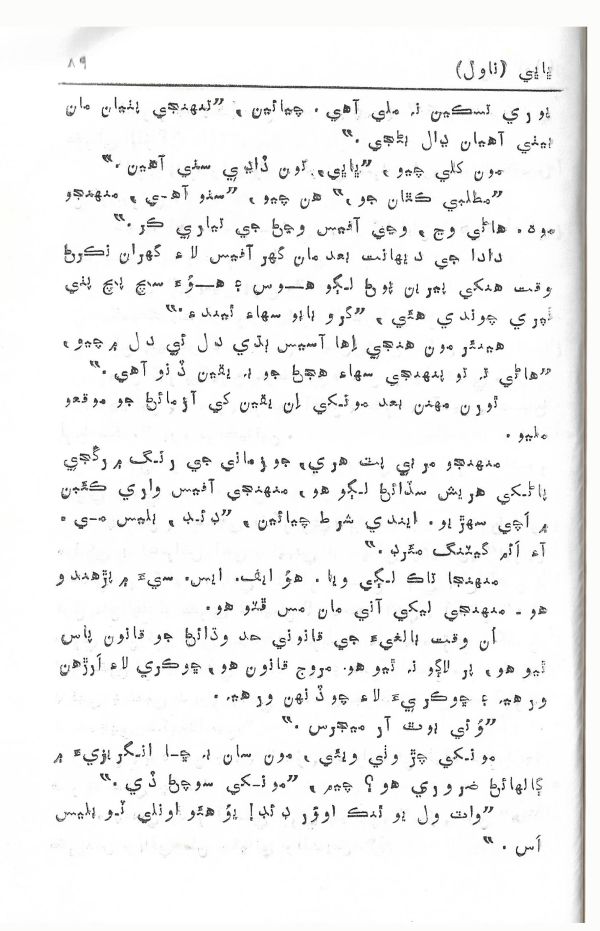 پاپي (ناول) ۸۹
پوري تسڪين نہ ملي آهي. چيائين، ”تنهنجي پٺيان مان
بيٺي آهيان ڍال بڻجي.“
مون کلي چيو، ”پاپي، تون ڏاڍي سٺي آهين.“
”مطلبي ڪٿان جو،“ هن چيو، ”سٺو آهي، منهنجو
موہ. هاڻي وڃ، وڃي آفيس وڃڻ جي تياري ڪر.“
دادا جي ديهانت بعد مان گهر آفيس لاءِ گهران نڪرڻ
وقت هنکي پيرين پوڻ لڳو هوس ۽ هوءَ سچ پچ پٺي
ٺپري چوندي هئي، ”گرو بابو سهاءِ ٿيندءِ.“
هينئر مون هنجي اِها آسيس ٻڌي دل ئي دل ۾ چيو،
”هاڻي تہ تو پنهنجي سهاءِ هجڻ جو بہ يقين ڏنو آهي.“
ٿورن مهنن بعد مونکي اِن يقين کي آزمائڻ جو موقعو
مليو.
منهنجو مربي پٽ هري، جو زماني جي رنگ ۾ رڱجي
پاڻکي هريش سڏائڻ لڳو هو، منهنجي آفيس واري ڪئبن
۾ اَچي سهڙيو. ايندي شرط چيائين، ”ڊئڊ، بليس مي.
آءِ ائم گيٽنگ مئرڊ.“
منهنجا ٺاڪ لڳي ويا. هوُ ايف. ايس. سيءَ ۾ پڙهندو
هو - منهنجي ليکي آني مان مس ڦٽو هو.
اُن وقت بالغيءَ جي قانوني حد وڌائڻ جو قانون پاس
ٿيو هو، پر لاڳو نہ ٿيو هو. مروج قانون هو، ڇوڪري لاءِ اَرڙهن
ورهيہ ۽ ڇوڪريءَ لاءِ چوڏنهن ورهيہ.
”وُئي بوٿ آر ميجرس.“
مونکي چڙ وٺي ويئي، مون سان بہ ڇا انگريزيءَ ۾
ڳالهائڻ ضروري هو؟ چيم، ”مونکي سوچڻ ڏي.“
”واٽ ول يو ٿنڪ اوؤر ڊئڊ! يوُ هئو اونلي ٽو بليس
اَس.“